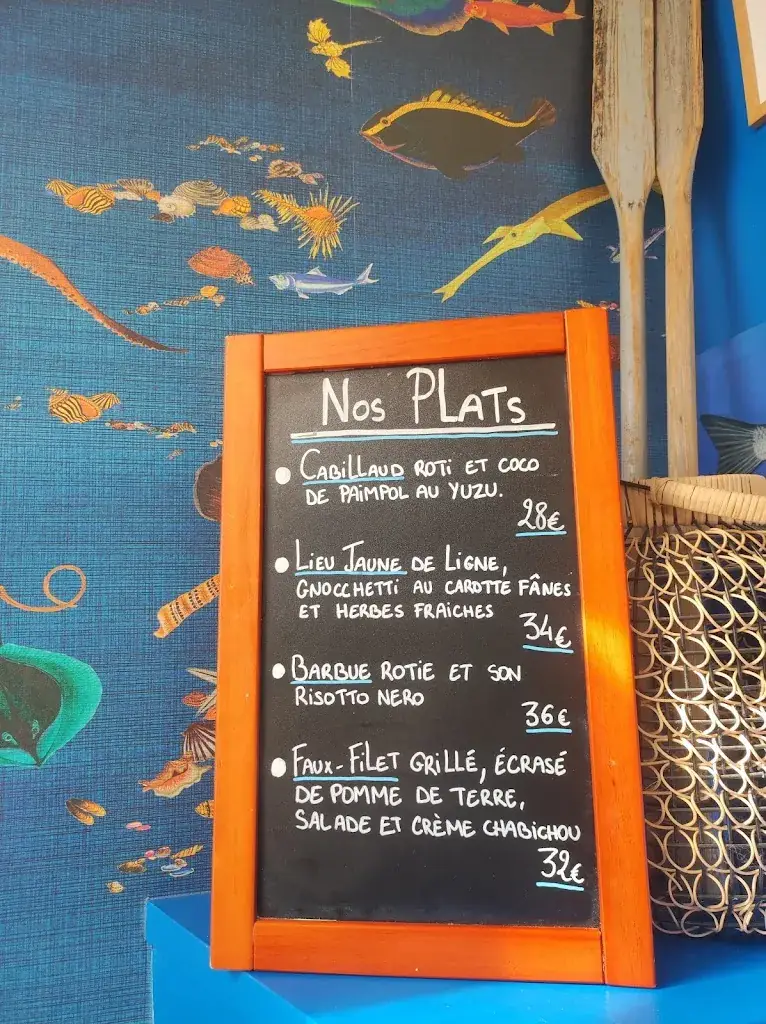 Nos PLATS
CABILLAUD ROTI ET COCO
DE PAIMPOL AU YUZU.
28€
LIEU JAUNE DE LIGNE,
GNOCCHETTI AU CAROTTE FÂNES
ET HERBES FRAICHES
34€
BARBUE ROTIE ET SON
RISOTTO NERO
36€
FAUX-FILET GRILLÉ, ÉCRASÉ
DE POMME DE TERRE,
SALADE ET CRÈME CHABICHOU
32€